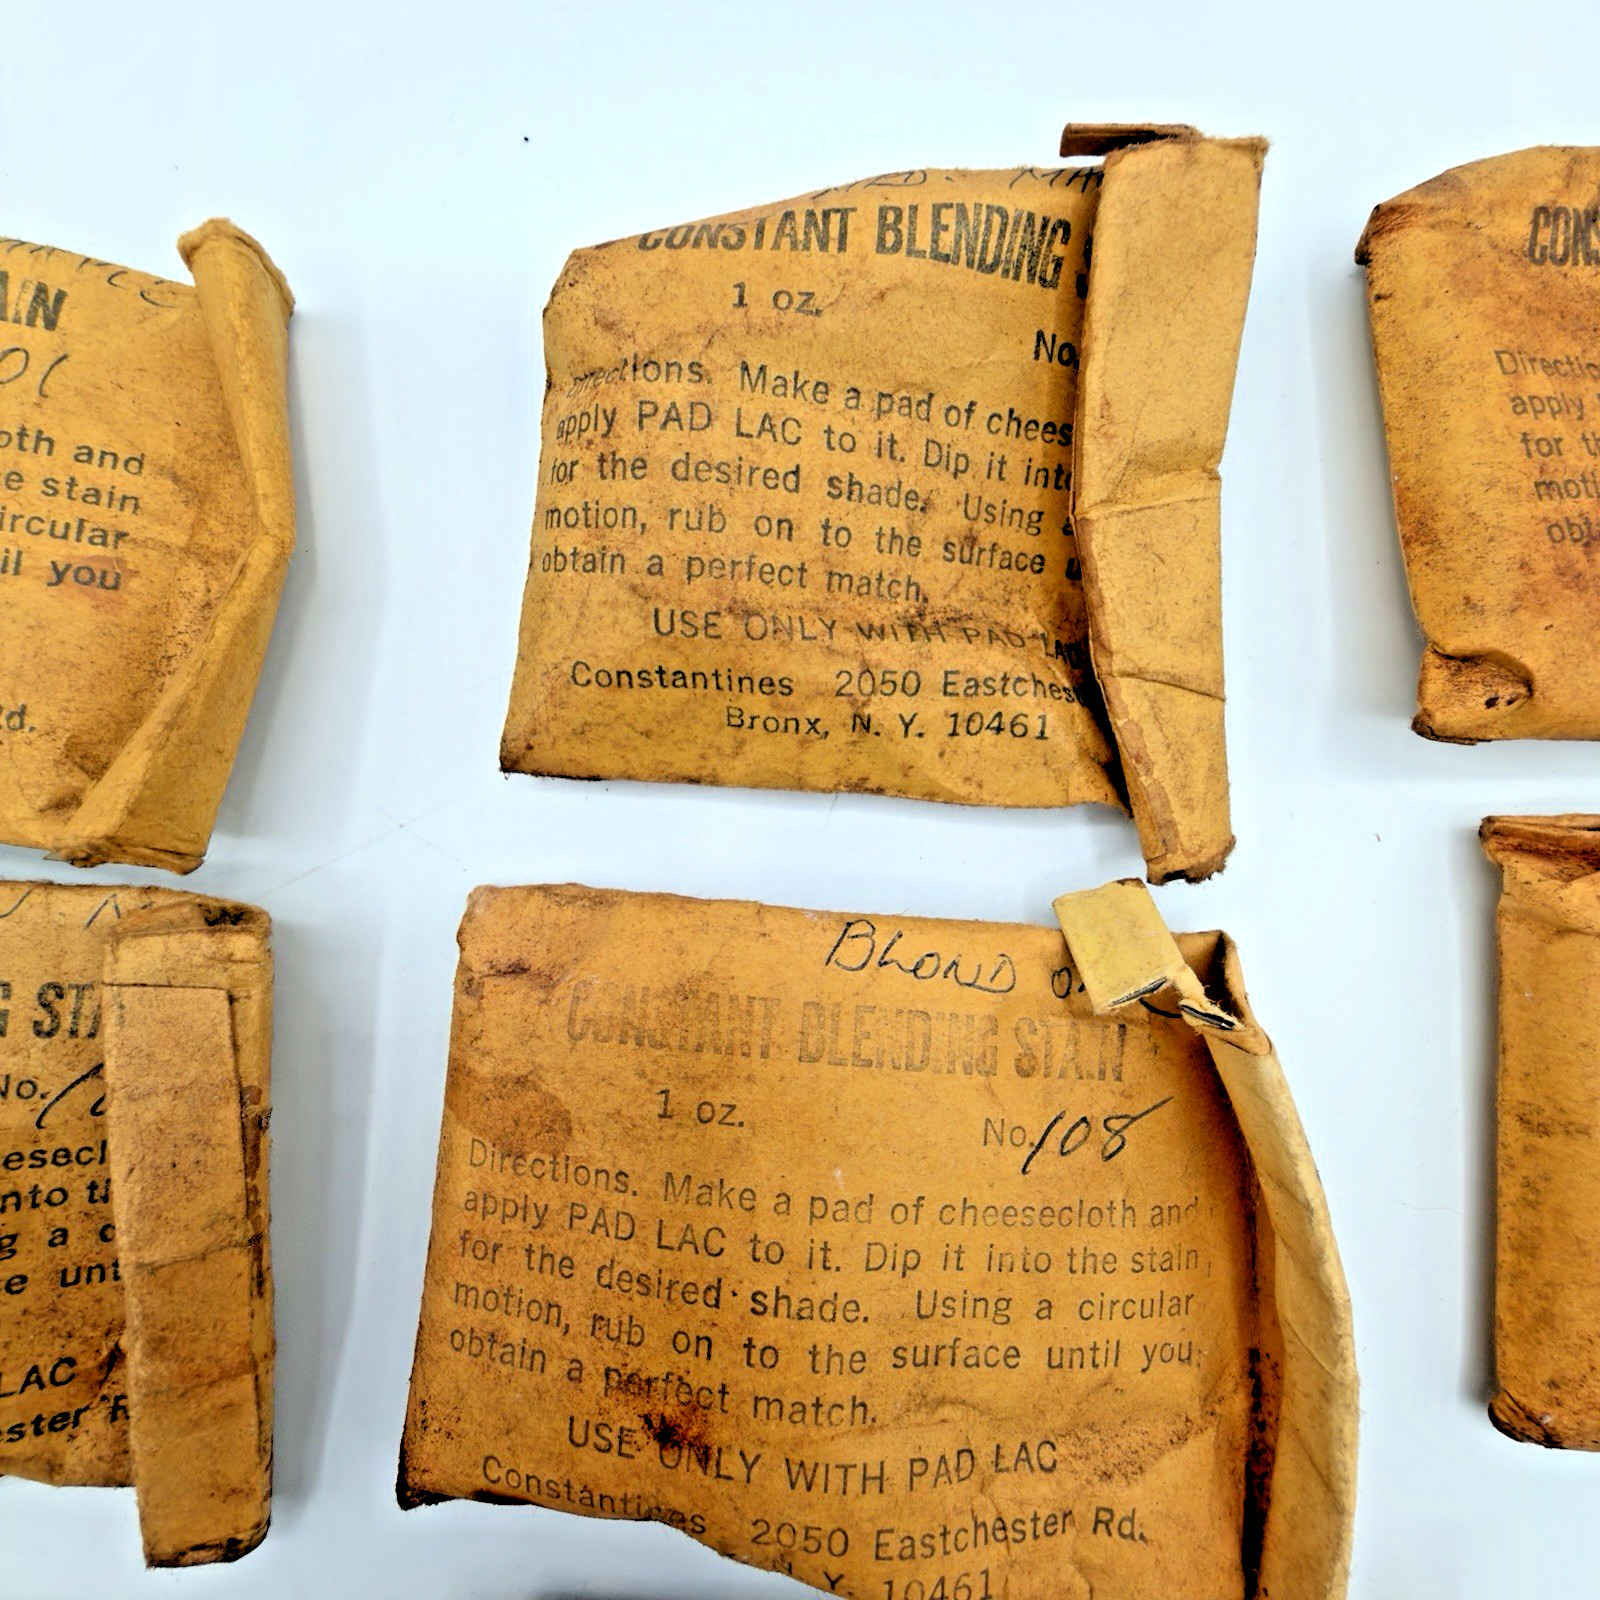 AIN
oth and
e stain
ircular
il you
Rd.
MED.
CONSTANT BLENDING
1 oz.
No.
Directions. Make a pad of chees
apply PAD LAC to it. Dip it into
for the desired shade. Using a
motion, rub on to the surface u
obtain a perfect match.
USE ONLY WITH PAD LAC
Constantines 2050 Eastches
Bronx, N. Y. 10461
CONS
Directio
apply
for th
moti
obt
G STA
No.
esecl
nto th
g a c
e unt
LAC
ester R
BLOND
CONSTANT BLENDING STAIN
1 oz.
No. 108
Directions. Make a pad of cheesecloth and
apply PAD LAC to it. Dip it into the stain
for the desired shade. Using a circular
motion, rub on to the surface until you
obtain a perfect match.
USE ONLY WITH PAD LAC
Constantines 2050 Eastchester Rd.
N. Y. 10461